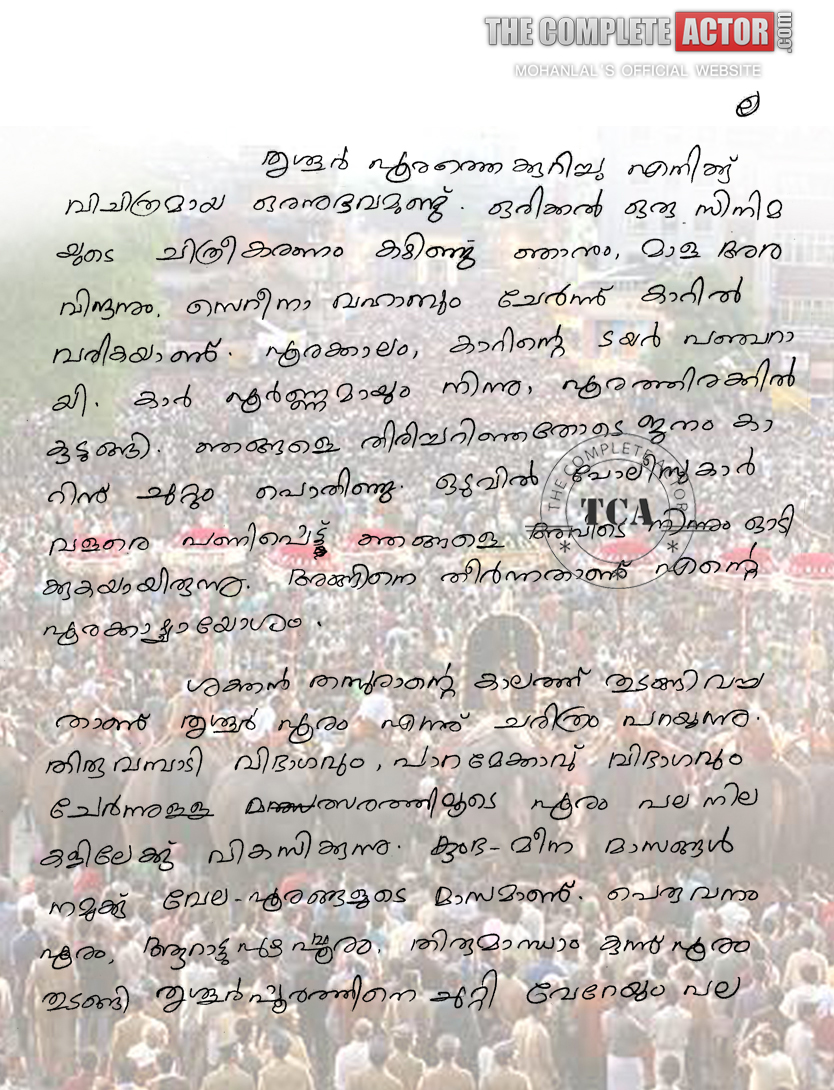 THE COMPLETE ACTOR .com
MOHANLAL'S OFFICIAL WEBSITE
തൃശ്ശൂർ പൂരത്തെക്കുറിച്ചു എനിക്ക്
വിചിത്രമായ ഒരനുഭവമുണ്ട്. ഒരിക്കൽ ഒരു സിനിമ
യുടെ ചിത്രീകരണം കഴിഞ്ഞ് ഞാനും, മാള അര
വിന്ദനും, സെറീനാ വഹാബും ചേർന്ന് കാറിൽ
വരികയാണ്. പൂരക്കാലം, കാറിന്റെ ടയർ പഞ്ചറാ
യി. കാർ പൂർണ്ണമായും നിന്നു, പൂരത്തിരക്കിൽ
കുടുങ്ങി. ഞങ്ങളെ തിരിച്ചറിഞ്ഞതോടെ ജനം കാ
റിന് ചുറ്റും പൊതിഞ്ഞു. ഒടുവിൽ പോലീസുകാർ
വളരെ പണിപ്പെട്ട് ഞങ്ങളെ അവിടെ നിന്നും ഓടി
ക്കുകയായിരുന്നു. അങ്ങിനെ തീർന്നതാണ് എന്റെ
പൂരക്കാഴ്ചായോഗം.
ശക്തൻ തമ്പുരാന്റെ കാലത്ത് തുടങ്ങിവച്ച
താണ് തൃശ്ശൂർ പൂരം എന്ന് ചരിത്രം പറയുന്നു.
തിരുവമ്പാടി വിഭാഗവും, പാറമേക്കാവ് വിഭാഗവും
ചേർന്നുള്ള മത്സരത്തിലൂടെ പൂരം പല നില
കളിലേക്ക് വികസിക്കുന്നു. കുംഭ-മീന മാസങ്ങൾ
നമുക്ക് വേല-പൂരങ്ങളുടെ മാസമാണ്. പെരുവനം
പൂരം, ആറാട്ടുപുഴ പൂരം, തിരുമാന്ധാം കുന്ന് പൂരം
തുടങ്ങി തൃശ്ശൂർപൂരത്തിനെ ചുറ്റി വേറേയും പല
THE COMPLETE ACTOR
TCA